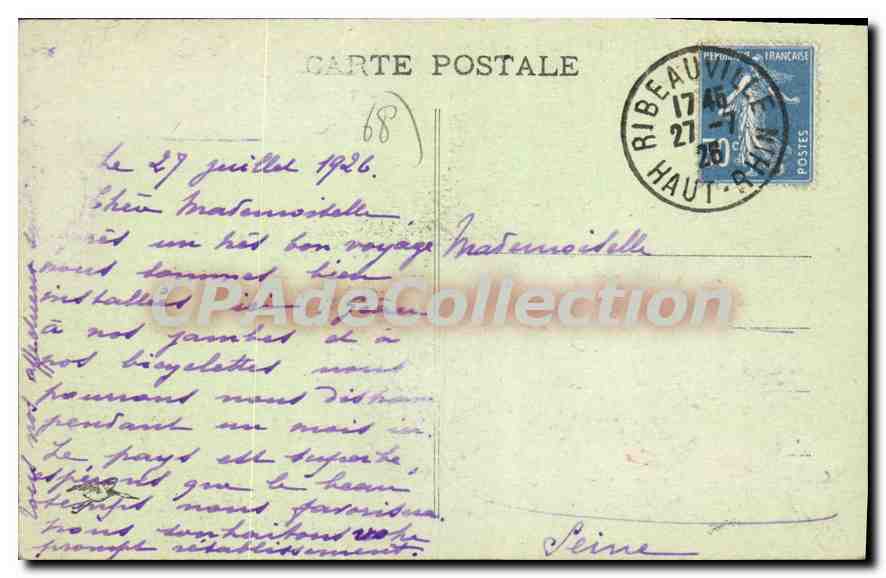 CARTE POSTALE
68
Le 27 juillet 1926.
Chère Mademoiselle,
Après un très bon voyage
nous sommes bien
installés ici
à nos jambes et à
nos bicyclettes nous
pourrons nous
pendant un mois ici.
Le pays est superbe,
espérons que le beau
temps nous favorisera
nous souhaitons votre
prompt rétablissement.
nos affectueux
Mademoiselle
Seine
RIBEAUVILLE HAUT-RHIN
17 45
27 -7
26
REPUBLIQUE FRANÇAISE
POSTES
CPAdeCollection.com